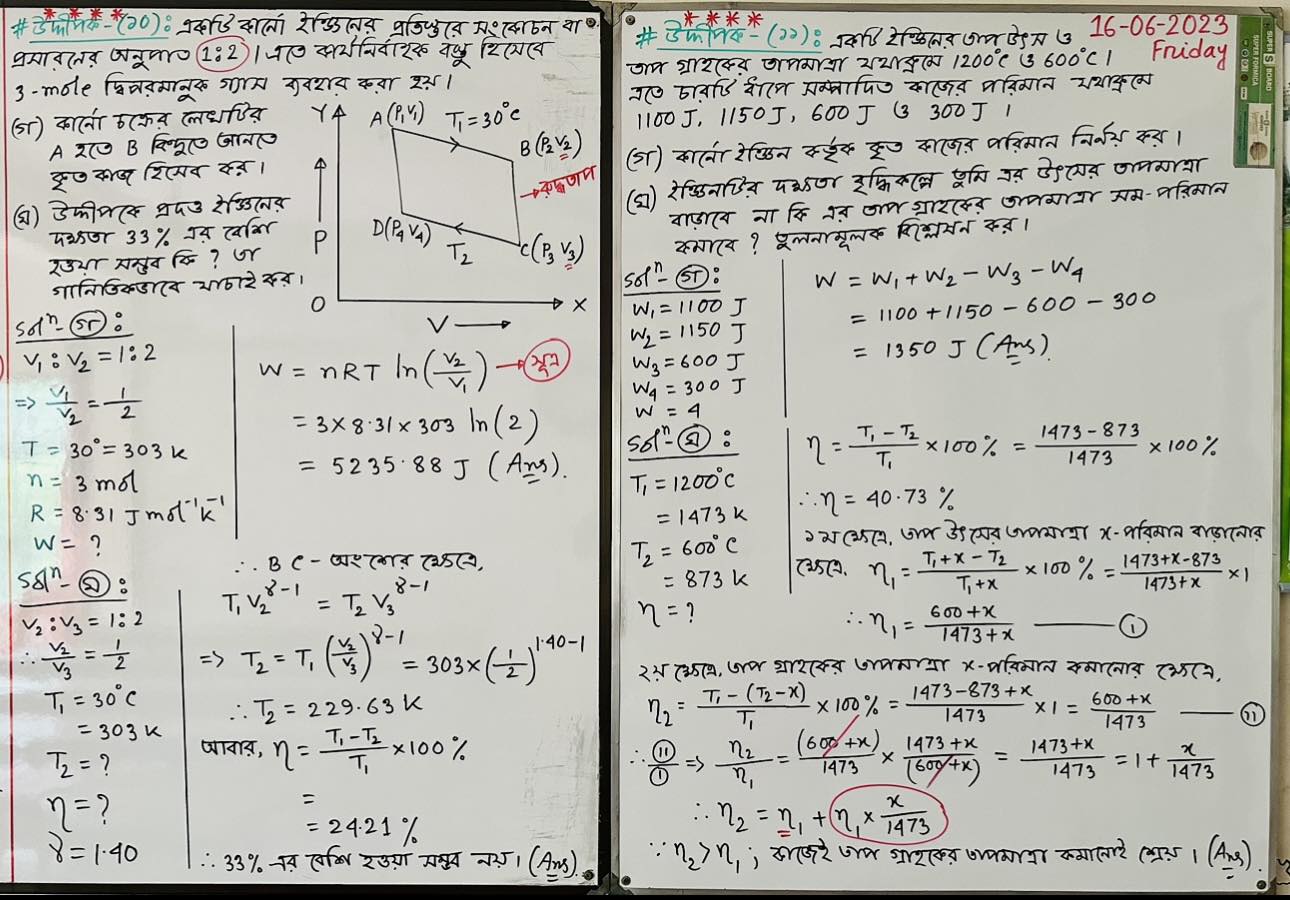 * * * *
# উদ্দীপক-(১০): একটি কার্নো ইঞ্জিনের প্রতিস্তরে সংকোচন বা
প্রসারনের অনুপাত 1:2। এতে কার্যনির্বাহক বস্তু হিসেবে
3-mole দ্বিপরমানুক গ্যাস ব্যবহার করা হয়।
(গ) কার্নো চক্রের লেখটির
A হতে B বিন্দুতে আনতে
কৃত কাজ হিসেব কর।
(ঘ) উদ্দীপকে প্রদত্ত ইঞ্জিনের
দক্ষতা 33% এর বেশি
হওয়া সম্ভব কি? তা
গানিতিকভাবে যাচাই কর।
Y
A(P₁V₁)
T₁=30°C
B(P₂V₂)
→ রুদ্ধতাপ
P
D(P₄V₄)
T₂
C(P₃V₃)
O
X
V →
Solⁿ-(গ):
V₁:V₂ = 1:2
=> V₁/V₂ = 1/2
T = 30° = 303 K
n = 3 mol
R = 8.31 J mol⁻¹K⁻¹
W = ?
W = nRT ln(V₂/V₁) → সূত্র
= 3×8.31×303 ln(2)
= 5235.88 J (Ans).
Solⁿ-(ঘ):
V₂:V₃ = 1:2
∴ V₂/V₃ = 1/2
T₁ = 30°C
= 303 K
T₂ = ?
η = ?
γ = 1.40
∴ BC-অংশের ক্ষেত্রে,
T₁V₂^γ-1 = T₂V₃^γ-1
=> T₂ = T₁(V₂/V₃)^γ-1 = 303×(1/2)^1.40-1
∴ T₂ = 229.63 K
আবার, η = (T₁-T₂)/T₁ ×100%
=
= 24.21 %
∴ 33% এর বেশি হওয়া সম্ভব নয়। (Ans).
* * * *
16-06-2023
Friday
SUPER S BOARD
SUPER FORMICA
# উদ্দীপক-(১১): একটি ইঞ্জিনের তাপ উৎস ও
তাপ গ্রাহকের তাপমাত্রা যথাক্রমে 1200°C ও 600°C।
এতে চারটি ধাপে সম্পাদিত কাজের পরিমান যথাক্রমে
1100 J, 1150 J, 600 J ও 300 J ।
(গ) কার্নো ইঞ্জিন কর্তৃক কৃত কাজের পরিমান নির্নয় কর।
(ঘ) ইঞ্জিনটির দক্ষতা বৃদ্ধিকল্পে তুমি এর উৎসের তাপমাত্রা
বাড়াবে না কি এর তাপ গ্রাহকের তাপমাত্রা সম-পরিমান
কমাবে? তুলনামূলক বিশ্লেষন কর।
Solⁿ-(গ):
W₁ = 1100 J
W₂ = 1150 J
W₃ = 600 J
W₄ = 300 J
W = 4
W = W₁ + W₂ - W₃ - W₄
= 1100 + 1150 - 600 - 300
= 1350 J (Ans).
Solⁿ-(ঘ):
T₁ = 1200°C
= 1473 K
T₂ = 600°C
= 873 K
η = ?
η = (T₁-T₂)/T₁ ×100% = (1473-873)/1473 ×100%
∴ η = 40.73 %
১ম ক্ষেত্রে, তাপ উৎসের তাপমাত্রা x-পরিমান বাড়ানোর
ক্ষেত্রে, η₁ = (T₁+x-T₂)/(T₁+x) ×100% = (1473+x-873)/(1473+x) ×1
∴ η₁ = (600+x)/(1473+x) —— (i)
২য় ক্ষেত্রে, তাপ গ্রাহকের তাপমাত্রা x-পরিমান কমানোর ক্ষেত্রে,
η₂ = (T₁-(T₂-x))/T₁ ×100% = (1473-873+x)/1473 ×1 = (600+x)/1473 —— (ii)
∴ (ii)/(i) => η₂/η₁ = (600+x)/1473 × (1473+x)/(600+x) = (1473+x)/1473 = 1 + x/1473
∴ η₂ = η₁ + η₁ × x/1473
∵ η₂ > η₁; কাজেই তাপ গ্রাহকের তাপমাত্রা কমানোই শ্রেয়। (Ans).